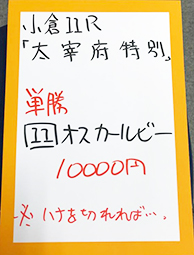 小倉11R
「太宰府特別」
単勝
11 オスカールビー
10000円
※ハナを切れれば…。